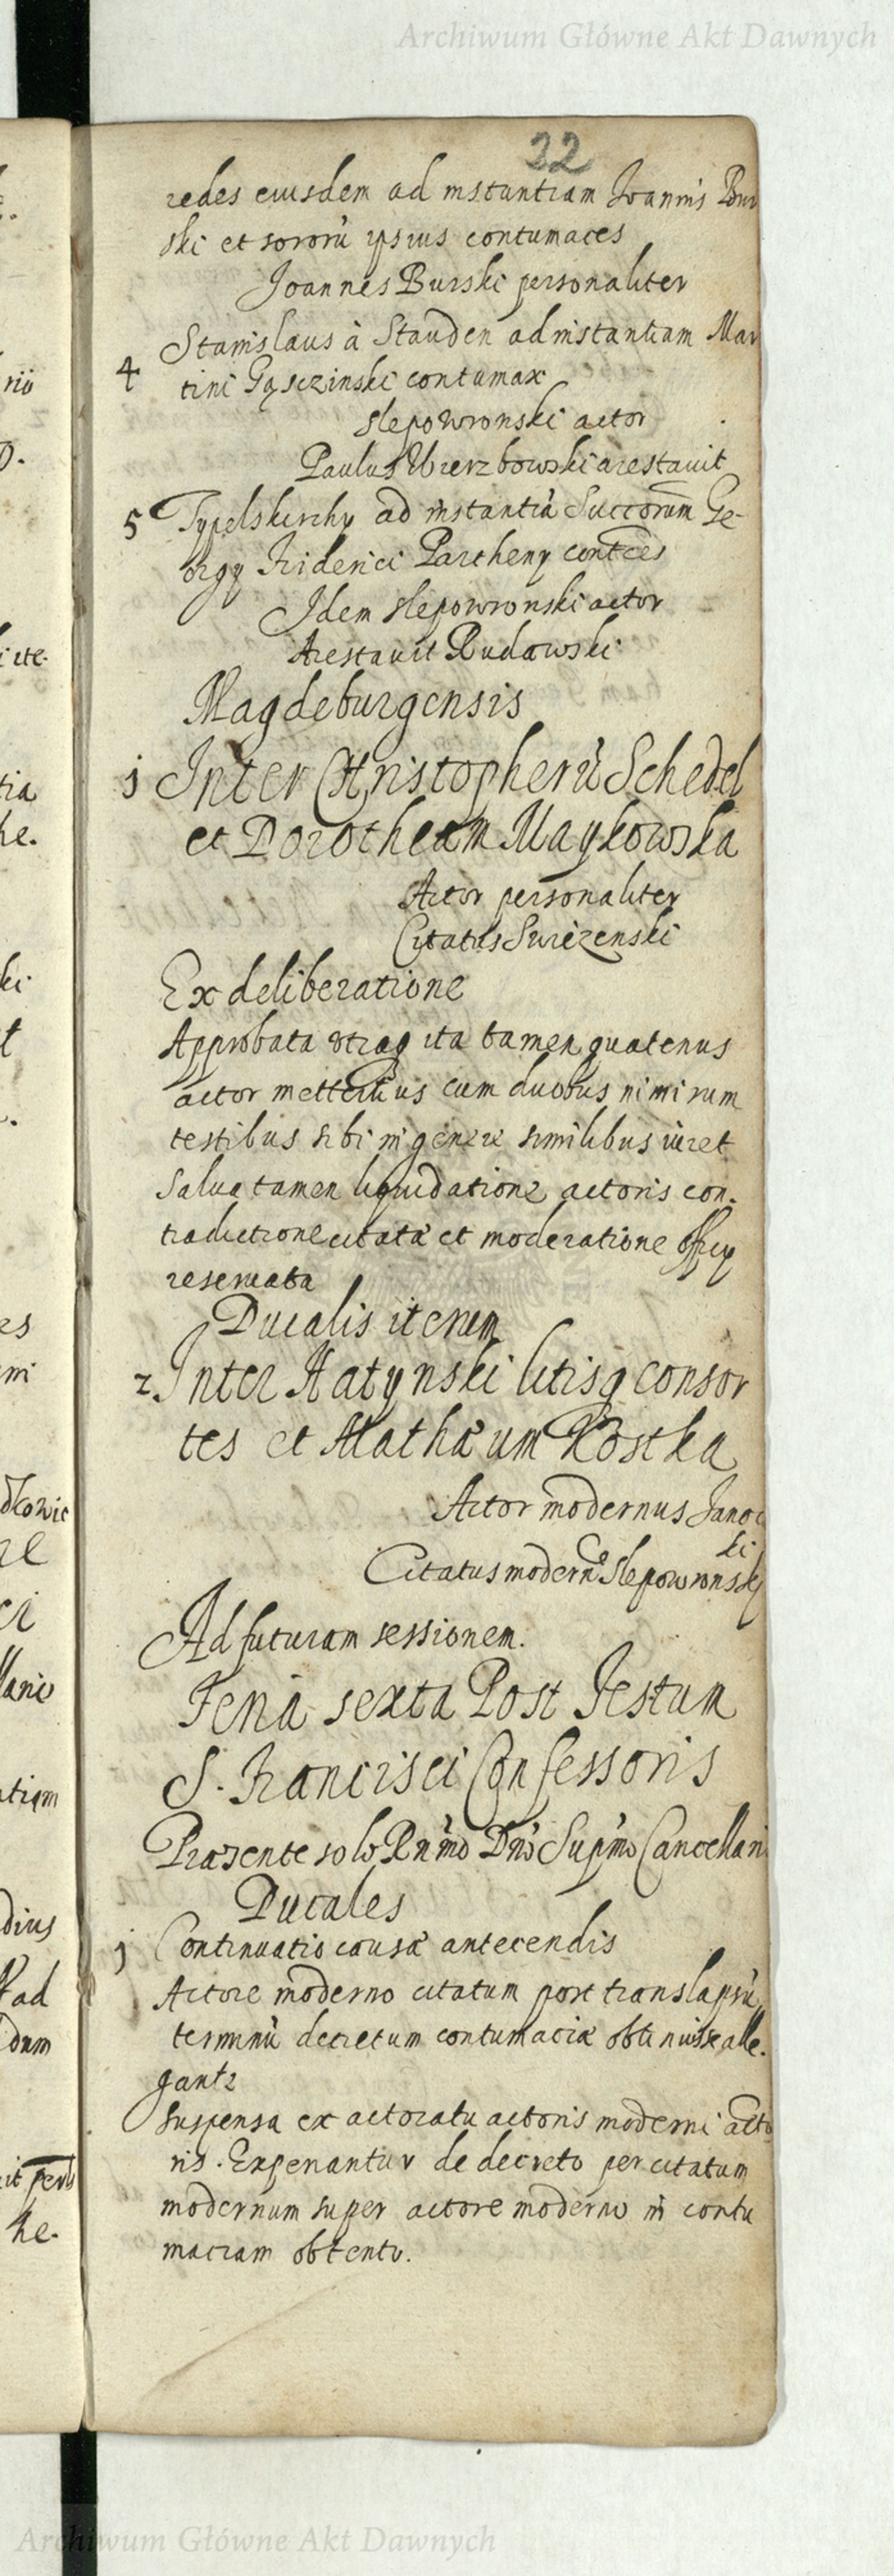 Archiwum Główne Akt Dawnych
22
redes eiusdem ad instantiam Joannis Bur
ski et sororū ipsius contumaces
Joannes Burski personaliter
4 Stanislaus à Stauden ad instantiam Mar
tini Gąsczinski contumax
Slepowronski actor
Paulus Wierzbowski arestavit
5 Typelskirchy ad instantiā Succorum Ge-
orgy Friderici Partheny contces
Idem Slepowronski actor
Arestavit Rudawski
Magdeburgensis
1 Inter Christopherū Schedel
et Dorotheam Maykowska
Actor personaliter
Citatus
Ex deliberatione
Approbata utraq ita tamen quatenus
actor mettertius cum duobus nimirum
testibus sibi in genere similibus iuret
Salva tamen liquidatione actoris con-
tradictione citatæ et moderatione officy
reservata
Ducalis iterum
2 Inter Hatynski litisq consor
tes et Mathæum Kostka
Actor modernus Janoc
ki
Citatus modern9 Slepowronski
Ad futuram sessionem.
Feria sexta Post Festum
S. Francisci Confessoris
Præsente solo Rñmo Dño Supmo Cancellari
Ducales
1 Continuatio causæ antecendis
Actore moderno citatum post translapsū
terminū decretum contumaciæ obtinuisse alle-
gante
Suspensa ex actoratu actoris moderni acto
ris. Expenantur de decreto per citatum
modernum super actore moderno in contu
maciam obtento.
Archiwum Główne Akt Dawnych